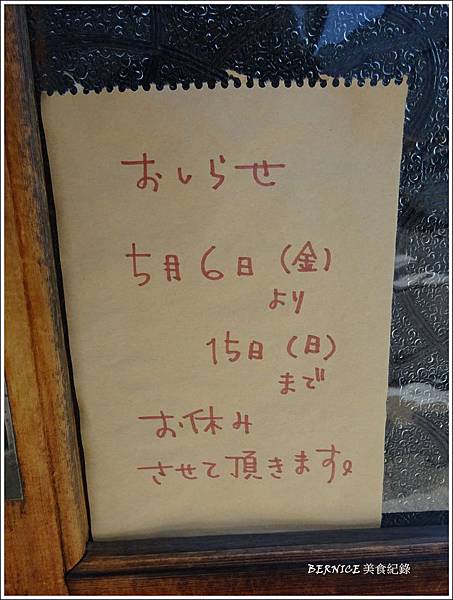 おしらせ
5月6日(金)
より
15日(日)
まで
お休み
させて頂きます。
BERNICE 美食紀錄